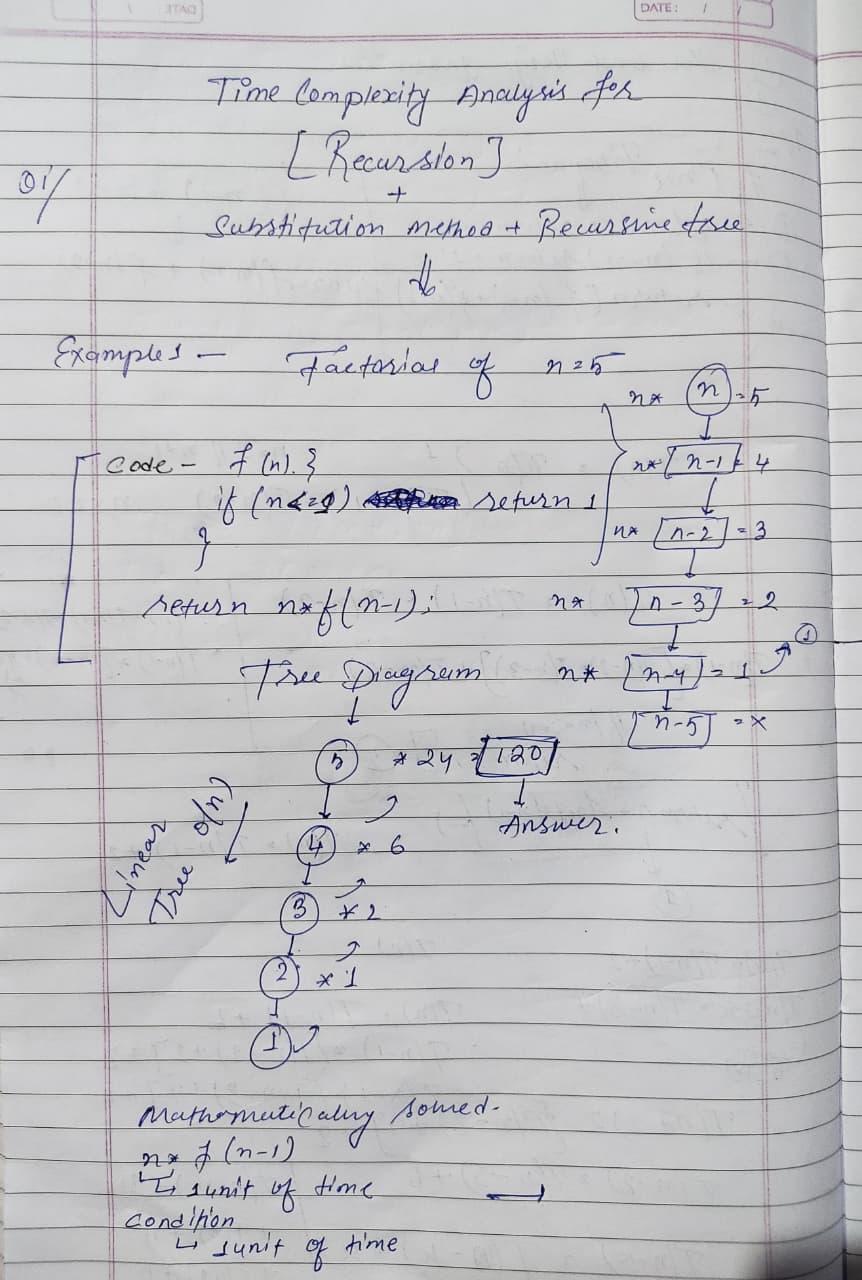 DATE: / /
Time Complexity Analysis for
[Recursion]
01/
+
Substitution method + Recursive tree
Examples - Factorial of n=5
n* (n) = 5
n* [n-1] = 4
n* [n-2] = 3
n* [n-3] = 2
n* [n-4] = 1 ①
[n-5] = x
Code - f(n). }
if (n<=1) return 1
}
return n*f(n-1);
Tree Diagram
5 * 24 = [120]
Answer.
4 * 6
3 * 2
2 * 1
1
Linear
Tree O(n)
Mathematically solved-
n* f(n-1)
↳ 1 unit of time
Condition
↳ 1 unit of time